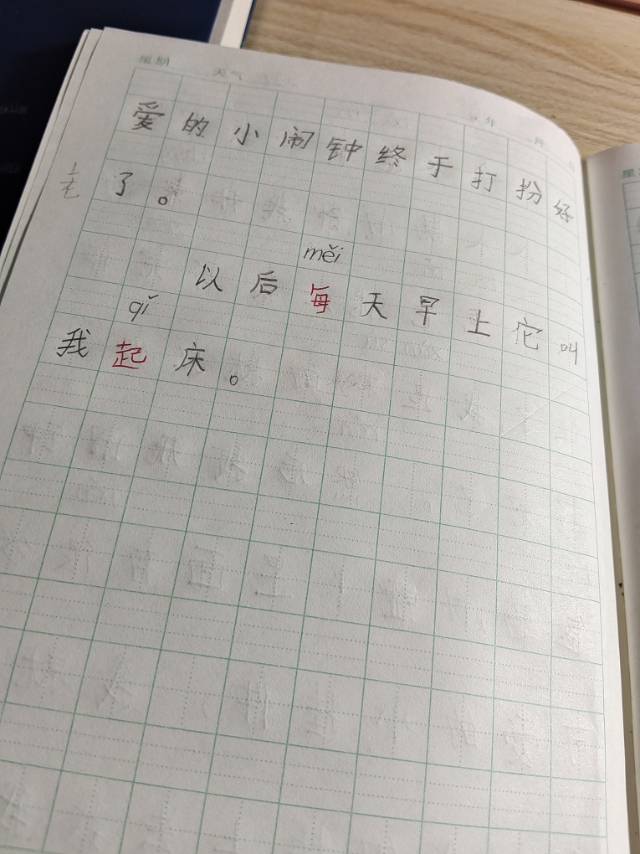 星期 天气 年 月
爱的小闹钟终于打扮好
了。
měi
以后每天早上它叫
qǐ
我起床。